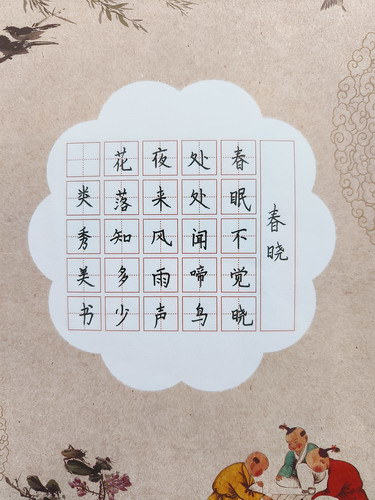 春晓
春眠不觉晓
处处闻啼鸟
夜来风雨声
花落知多少
类秀美书